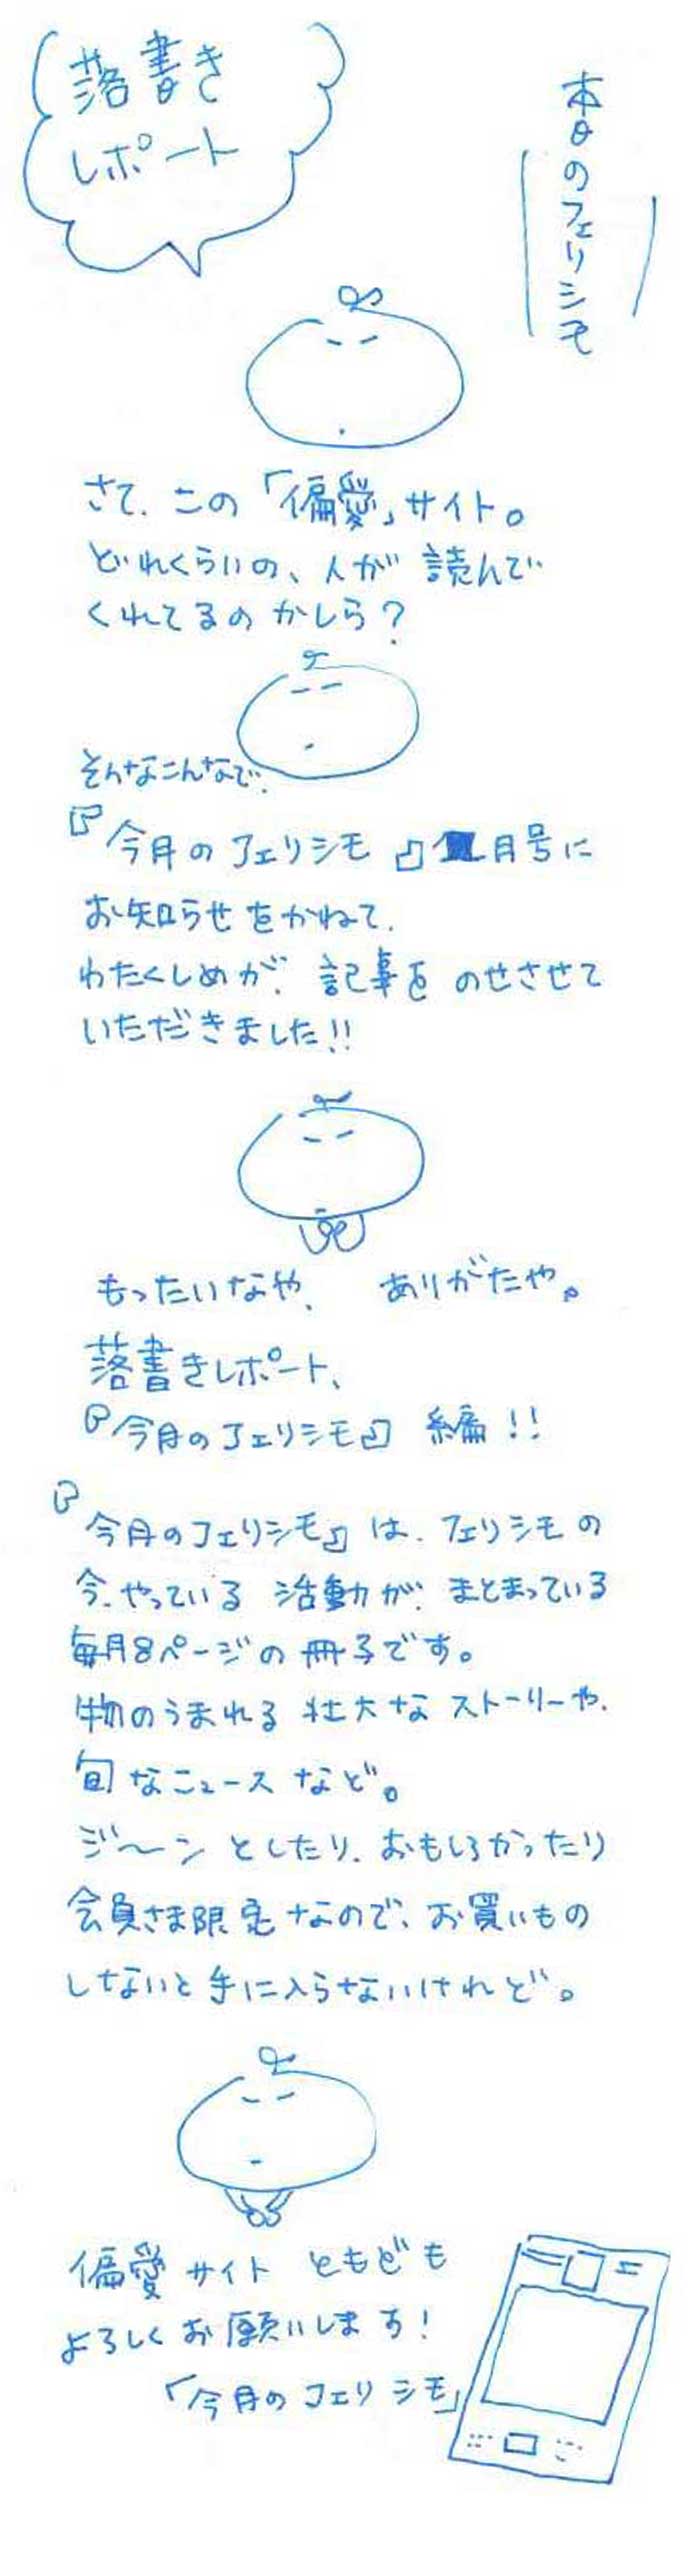 落書き
レポート
本日のフェリシモ
さて、この「偏愛」サイト。
どれくらいの、人が 読んで
くれてるのかしら?
そんなこんなで、
『今月のフェリシモ』月号に
お知らせをかねて、
わたくしめが、記事を のせさせて
いただきました!!
もったいなや、 ありがたや。
落書きレポート、
『今月のフェリシモ』編!!
『今月のフェリシモ』は、フェリシモの
今、やっている 活動が、まとまっている
毎月8ページの冊子です。
物のうまれる 壮大な ストーリーや、
旬なニュースなど。
ジ〜ン としたり、おもしろかったり
会員さま限定なので、お買いもの
しないと手に入らないけれど。
偏愛サイト ともども
よろしくお願いします!
「今月のフェリシモ」